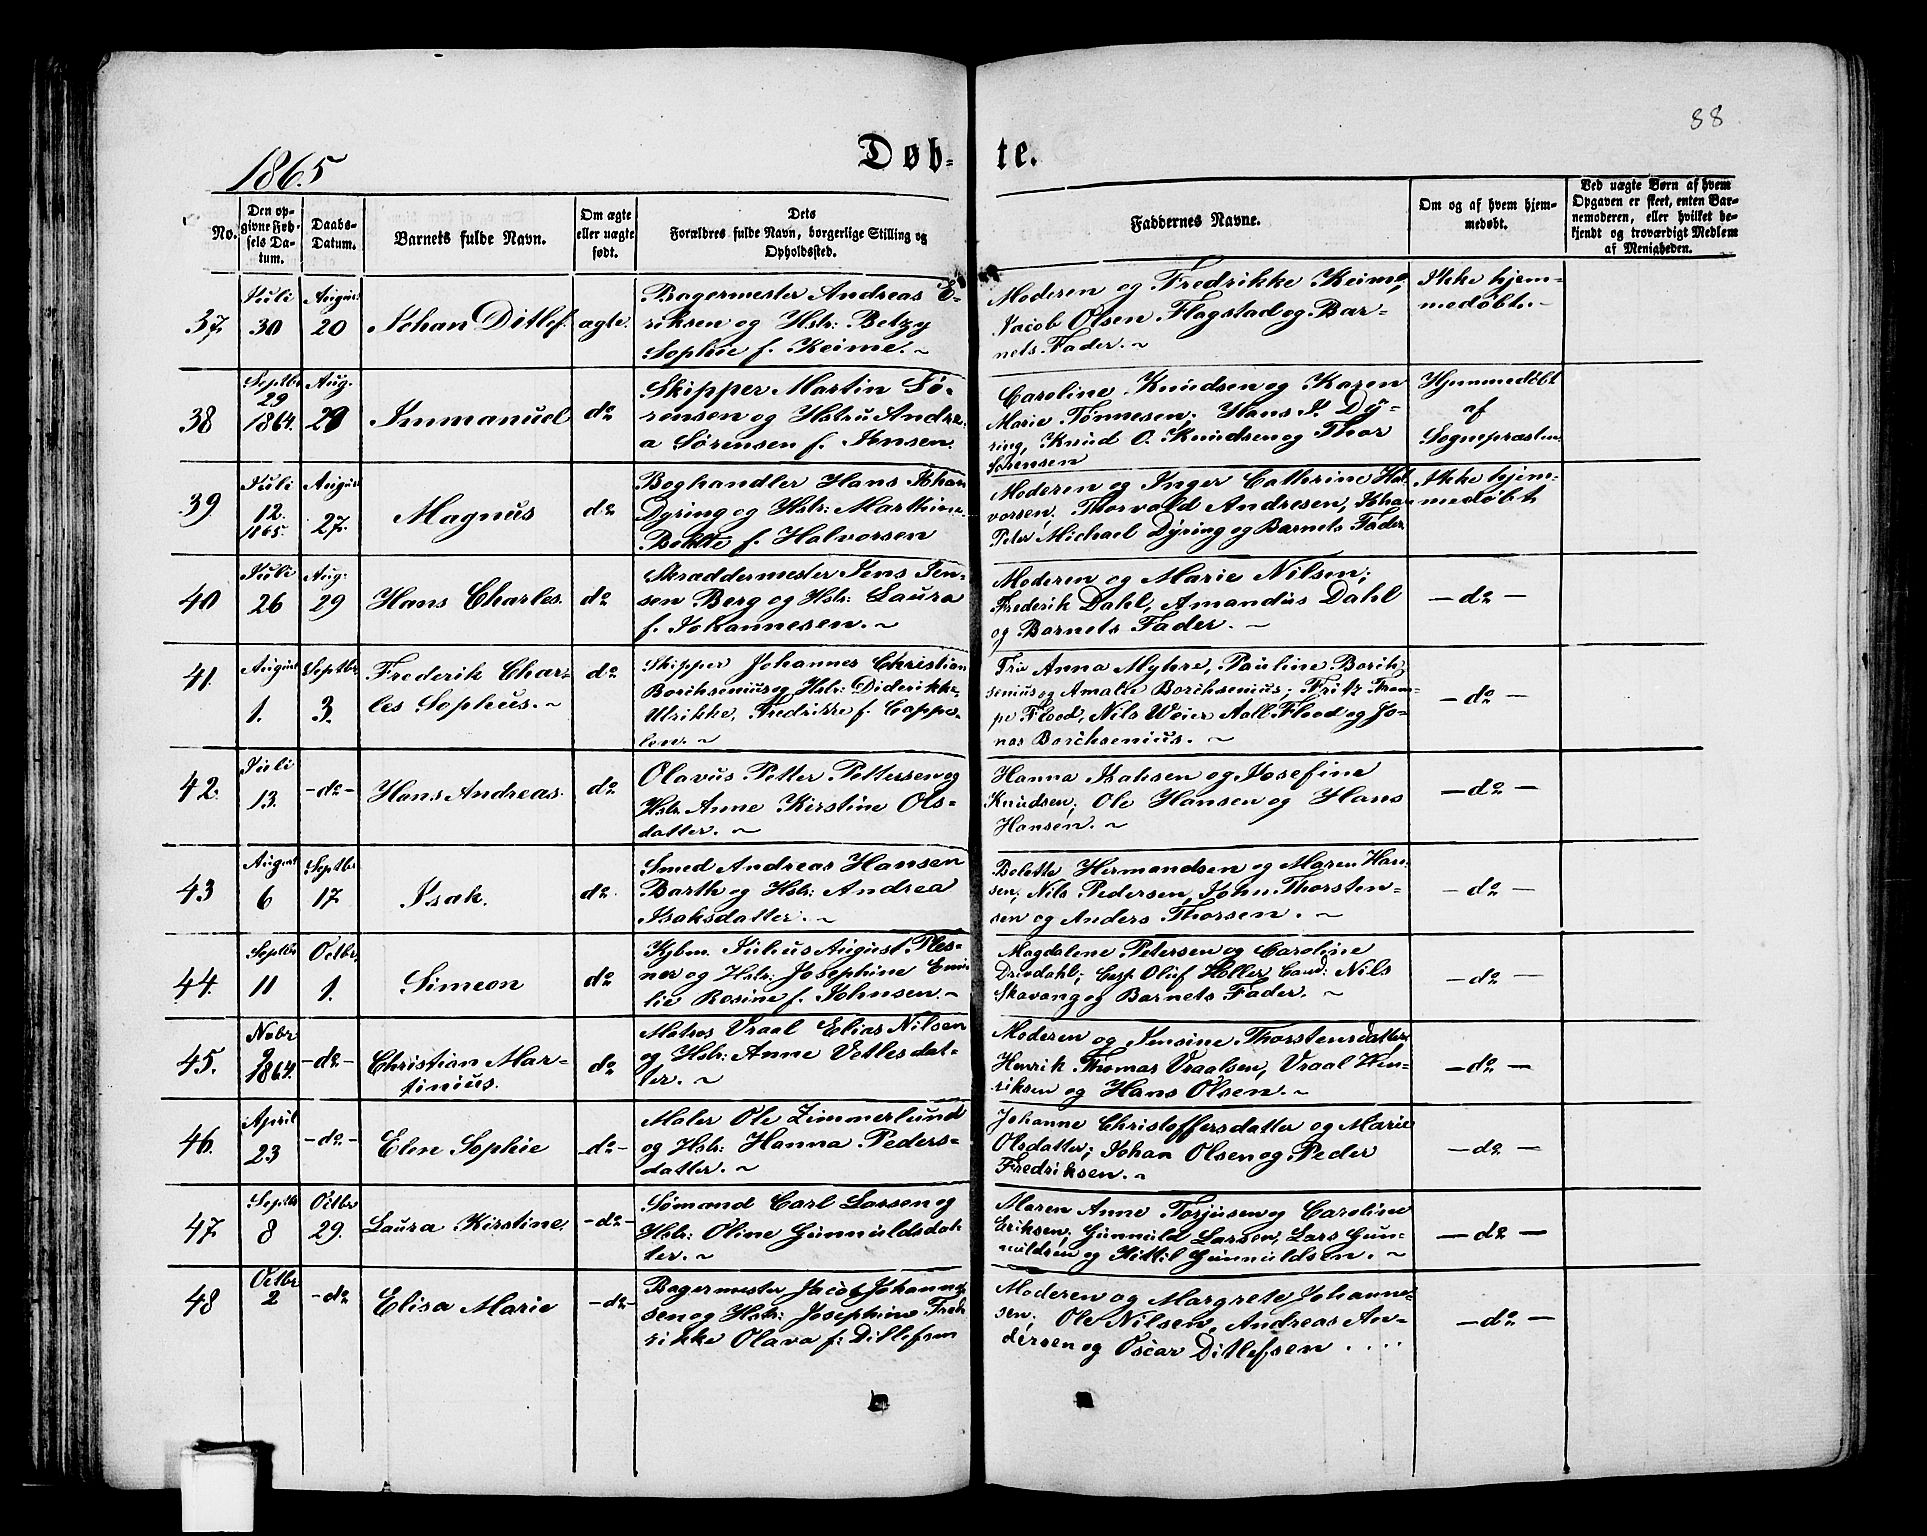 88
1865
Døb-te.
No.
Den opgivne Fødsels Datum.
Daabs-Datum.
Barnets fulde Navn.
Om ægte eller uægte født.
Dets Forældres fulde Navn, borgerlige Stilling og Opholdssted.
Faddernes Navne.
Om og af hvem hjemmedøbt.
Ved uægte Børn af hvem Opgaven er skeet, enten Barnemoderen, eller hvilket bekjendt og troværdigt Medlem af Menigheden.
37. Juli 30 August 20 Johan Ditlef. ægte.
Bagermester Andreas E-
riksen og Hstr: Betzy
Sophie f. Keime. ~
Moderen og Fredrikke Keime,
Jacob Olsen Flagstad og Bar-
nets Fader. ~
Ikke hjem-
medøbt. -
38 Septbr 29 1864. Aug. 20 Immanuel do
Skipper Martin Sø-
rensen og Hstru Andre-
a Sørensen f. Jensen.
Caroline Knudsen og Karen
Marie Tønnesen; Hans J. Dy-
ring, Knud O. Knudsen og Thor
Sørensen
Hjemmedøbt
af
Sognepræsten.
39 Juli 12. 1865. August 27. Magnus do
Boghandler Hans Johan
Dyring og Hstr: Marthine
Bolette f. Halvorsen
Moderen og Inger Cathrine Hal-
vorsen. Thorvald Andresen, Johan
Peter Michael Dyring og Barnets Fader.
Ikke hjem-
medøbt
40 Juli 26 Aug. 29 Hans Charles. do
Skræddermester Jens Jen-
sen Berg og Hstr: Laura
f. Johannesen. ~
Moderen og Marie Nilsen;
Frederik Dahl, Amandus Dahl
og Barnets Fader. ~
- do -
41. August 1. Septbr 3. Frederik Char-
les Sophus. ~ do
Skipper Johannes Christian
Borchsenius og Hstr: Diderikke,
Ulrikke, Fredrikke f. Cappe-
len. ~
Fru Anna Myhre, Pauline Borch-
senius og Amalie Borchsenius; Fritz Tram-
pe Flood, Nils Weier Aall Flood og Jo-
nas Borchsenius. ~
- do -
42. Juli 13. - do - Hans Andreas. do
Olavus Petter Pettersen og
Hstr. Anne Kirstine Ols-
datter. ~
Hanna Isaksen og Josefine
Knudsen; Ole Hansen og Hans
Hansen. ~
- do -
43 August 6 Septbr 17 Isak. do.
Smed Andreas Hansen
Barth og Hstr: Andrea
Isaksdatter. ~
Bolette Hermandsen og Maren Han-
sen; Nils Pedersen, John Thorsten-
sen og Anders Thorsen. ~
- do -
44. Septbr 11 Octbr. 1. Simeon do
Kjbm. Julius August Ples-
ner og Hstr: Josephine Emi-
lie Rosine f. Johnsen. ~
Magdalene Petersen og Caroline
Drivdahl; Oluf Holler, Cand: Nils
Skavang og Barnets Fader. ~
- do -
45. Nvbr 9 1864. - do - Christian Mar-
tinius. do
Matros Vraal Elias Nilsen
og Hstr: Anne Vetlesdat-
ter. ~
Moderen og Jensine Thorstensdatter;
Henrik Thomas Vraalsen, Vraal Hen-
riksen og Hans Olsen. ~
- do -
46. April 23 - do - Elen Sophie - do -
Maler Ole Zimmerlund
og Hstr: Hanna Peders-
datter. ~
Johanne Christoffersdatter og Marie
Olsdatter; Johan Olsen og Peder
Fredriksen. ~
- do -
47. Septbr 8 Octbr 29. Laura Kirstine. - do -
Sømand Carl Larsen og
Hstr: Oline Gunnuldsdat-
ter. ~
Maren Anne Torjusen og Caroline
Eriksen; Gunnuld Larsen, Lars Gun-
nuldsen og Kittil Gunnuldsen. ~
- do -
48 Octbr 2 - do Elisa Marie - do -
Bagermester Jacob Johanne-
sen og Hstr: Josephine Fred-
rikke Olava f. Ditlefsen
Moderen og Margrete Johanne-
sen; Ole Nilsen, Andreas An-
dersen og Oscar Ditlefsen ....
- do -